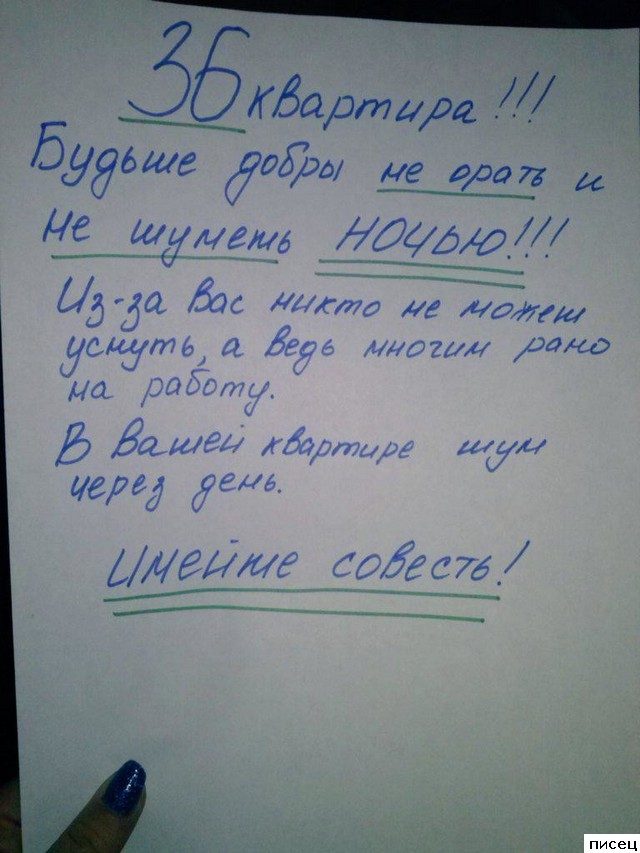 36 квартира!!!
Будьте добры не орать и
не шуметь НОЧЬЮ!!!
Из-за Вас никто не может
уснуть, а ведь многим рано
на работу.
В Вашей квартире шум
через день.
Имейте совесть!
писец